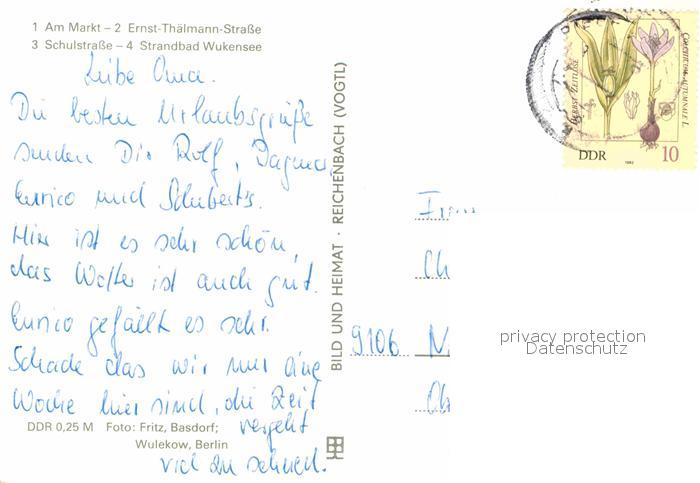 1 Am Markt – 2 Ernst-Thälmann-Straße
3 Schulstraße – 4 Strandbad Wukensee
Liebe Oma.
Die besten Urlaubsgrüße
senden Dir Rolf, Dagmar,
Enrico und Schubert's.
Hier ist es sehr schön,
das Wetter ist auch gut.
Enrico gefällt es sehr.
Schade das wir nur eine
Woche hier sind, die Zeit
vergeht
viel zu schnell.
DDR 0,25 M Foto: Fritz, Basdorf;
Wulekow, Berlin
BILD UND HEIMAT · REICHENBACH (VOGTL)
HERBST-ZEITLOSE
COLCHICUM AUTUMNALE L.
DDR 1982 10
Ch
9106 N
privacy protection
Datenschutz